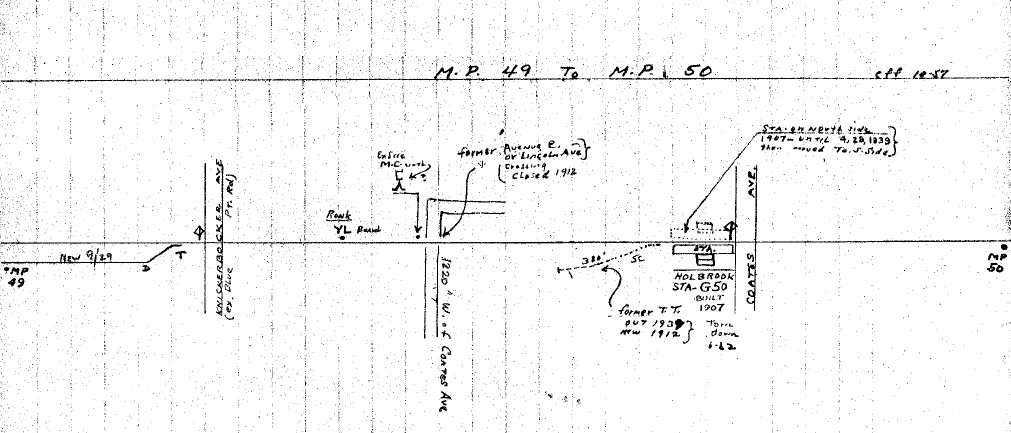 M.P. 49 To M.P. 50
eff 10-57
STA-on North Side
1907 - until 4,28,1939
then moved To. S. Side
former Avenue E.
or Lincoln Ave
crossing
closed 1912
M.C. with ?
KNICKERBOCKER AVE
(ex. Dlue Pt. Rd)
YL Board
NEW 9/29
D
T
MP
49
1220' W. of COATES AVE
380'
SC
STA
HOLBROOK
STA-G50
BUILT
1907
Torn
down
6-62
former T.T.
OUT 1939
NEW 1912
COATES AVE.
MP
50